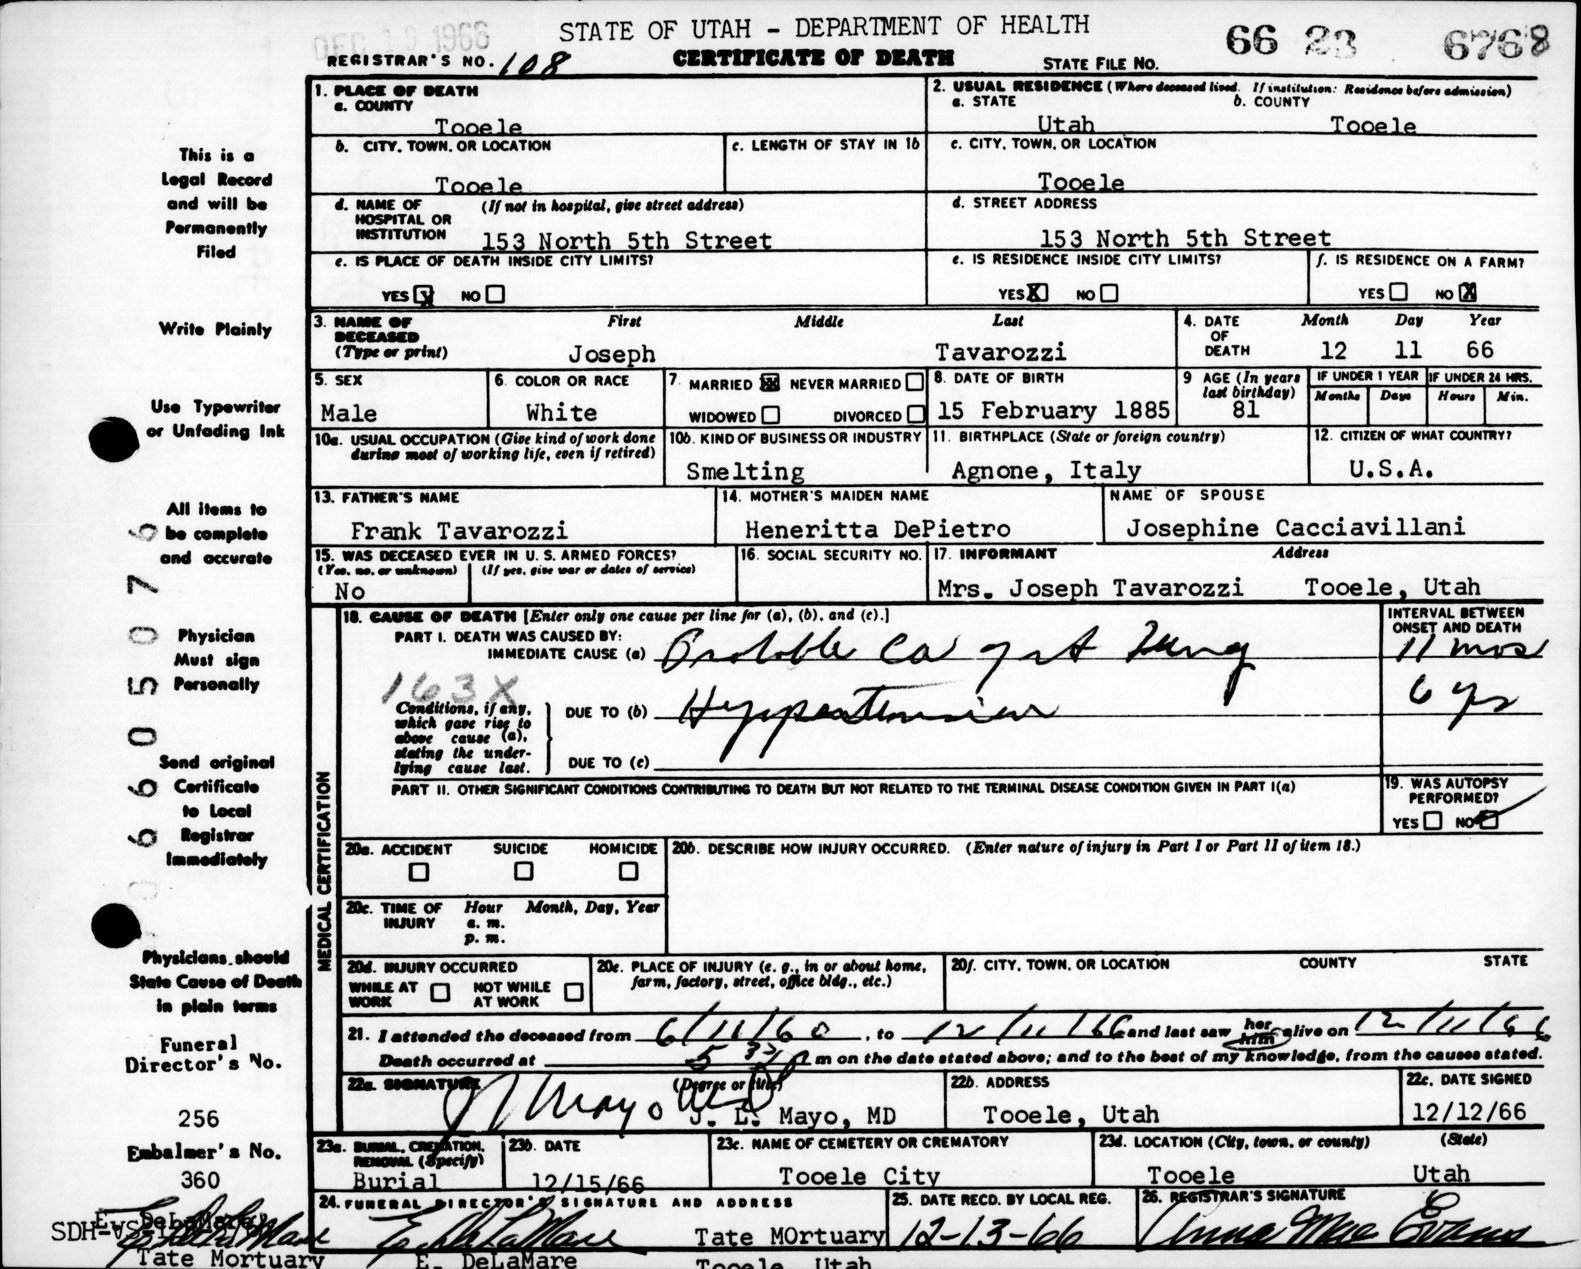 STATE OF UTAH - DEPARTMENT OF HEALTH
DEC 19 1966
66 23 6768
REGISTRAR'S NO. 108
CERTIFICATE OF DEATH
STATE FILE NO.
This is a
Legal Record
and will be
Permanently
Filed
Write Plainly
Use Typewriter
or Unfading Ink
All items to
be complete
and accurate
Physician
Must sign
Personally
Send original
Certificate
to Local
Registrar
Immediately
Physicians should
State Cause of Death
in plain terms
Funeral
Director's No.
256
Embalmer's No.
360
E. DeLaMare
Tate Mortuary
6605076
1. PLACE OF DEATH
a. COUNTY
Tooele
2. USUAL RESIDENCE (Where deceased lived. If institution: Residence before admission)
a. STATE b. COUNTY
Utah Tooele
b. CITY, TOWN, OR LOCATION
Tooele
c. LENGTH OF STAY IN 1b
c. CITY, TOWN, OR LOCATION
Tooele
d. NAME OF (If not in hospital, give street address)
HOSPITAL OR
INSTITUTION 153 North 5th Street
d. STREET ADDRESS
153 North 5th Street
e. IS PLACE OF DEATH INSIDE CITY LIMITS?
YES X NO
e. IS RESIDENCE INSIDE CITY LIMITS?
YES X NO
f. IS RESIDENCE ON A FARM?
YES NO X
3. NAME OF First Middle Last
DECEASED
(Type or print) Joseph Tavarozzi
4. DATE Month Day Year
OF
DEATH 12 11 66
5. SEX
Male
6. COLOR OR RACE
White
7. MARRIED X NEVER MARRIED
WIDOWED DIVORCED
8. DATE OF BIRTH
15 February 1885
9 AGE (In years
last birthday)
81
IF UNDER 1 YEAR IF UNDER 24 HRS.
Months Days Hours Min.
10a. USUAL OCCUPATION (Give kind of work done
during most of working life, even if retired)
10b. KIND OF BUSINESS OR INDUSTRY
Smelting
11. BIRTHPLACE (State or foreign country)
Agnone, Italy
12. CITIZEN OF WHAT COUNTRY?
U.S.A.
13. FATHER'S NAME
Frank Tavarozzi
14. MOTHER'S MAIDEN NAME
Heneritta DePietro
NAME OF SPOUSE
Josephine Cacciavillani
15. WAS DECEASED EVER IN U. S. ARMED FORCES?
(Yes, no, or unknown) (If yes, give war or dates of service)
No
16. SOCIAL SECURITY NO.
17. INFORMANT Address
Mrs. Joseph Tavarozzi Tooele, Utah
MEDICAL CERTIFICATION
18. CAUSE OF DEATH [Enter only one cause per line for (a), (b), and (c).]
INTERVAL BETWEEN
ONSET AND DEATH
PART I. DEATH WAS CAUSED BY:
IMMEDIATE CAUSE (a) Probable Ca of rt Lung 11 mos
163X
Conditions, if any,
which gave rise to
above cause (a),
stating the under-
lying cause last.
DUE TO (b) Hypertension 6 yrs
DUE TO (c)
PART II. OTHER SIGNIFICANT CONDITIONS CONTRIBUTING TO DEATH BUT NOT RELATED TO THE TERMINAL DISEASE CONDITION GIVEN IN PART I(a)
19. WAS AUTOPSY
PERFORMED?
YES NO
20a. ACCIDENT SUICIDE HOMICIDE
20b. DESCRIBE HOW INJURY OCCURRED. (Enter nature of injury in Part I or Part II of item 18.)
20c. TIME OF Hour Month, Day, Year
INJURY a. m.
p. m.
20d. INJURY OCCURRED
WHILE AT NOT WHILE
WORK AT WORK
20e. PLACE OF INJURY (e. g., in or about home,
farm, factory, street, office bldg., etc.)
20f. CITY, TOWN, OR LOCATION COUNTY STATE
21. I attended the deceased from 6/11/60, to 12/11/66 and last saw her him alive on 12/11/66
Death occurred at 5 p m on the date stated above; and to the best of my knowledge, from the causes stated.
22a. SIGNATURE (Degree or title)
J L Mayo MD J. L. Mayo, MD
22b. ADDRESS
Tooele, Utah
22c. DATE SIGNED
12/12/66
23a. BURIAL, CREMATION,
REMOVAL (Specify)
Burial
23b. DATE
12/15/66
23c. NAME OF CEMETERY OR CREMATORY
Tooele City
23d. LOCATION (City, town, or county) (State)
Tooele Utah
24. FUNERAL DIRECTOR'S SIGNATURE AND ADDRESS
E. DeLaMare Tate MOrtuary
E. DeLaMare Tooele, Utah
25. DATE RECD. BY LOCAL REG.
12-13-66
26. REGISTRAR'S SIGNATURE
Anna Mae Evans